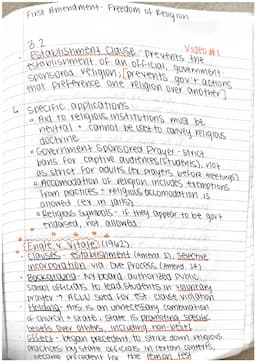 First Amendment - Freedom of Religion
3.2
Video #1
Establishment Clause: Prevents the
establishment of an official, government
sponsored religion; [prevents gov't actions
that preference one religion over another]
↳ specific applications
• Aid to religious institutions must be
neutral + cannot be used to convey religious
doctrine
• Government sponsored Prayer - strict
bans for captive audiences (students), not
as strict for adults (ex prayers before meetings)
• Accomodation of religion includes exemptions
from practices + religious accomodation is
allowed (ex in jails)
• Religious symbols - if they appear to be gov't
endorsed, not allowed
Engle v. Vitale (1962)
Clauses - establishment (Amend 1), selective
incorporation via Due Process (Amend. 14)
Background - NY board authorized Public
school officials to lead students in voluntary
prayer → ACLU sued for est. clause violation
Holding: this is an unnecessary combination
of church + state; state is promoting specific
beliefs over others, including non-belief
Effect - began precedent to strike down religious
practices by state officials in certain events,
become precedent for the lemon test